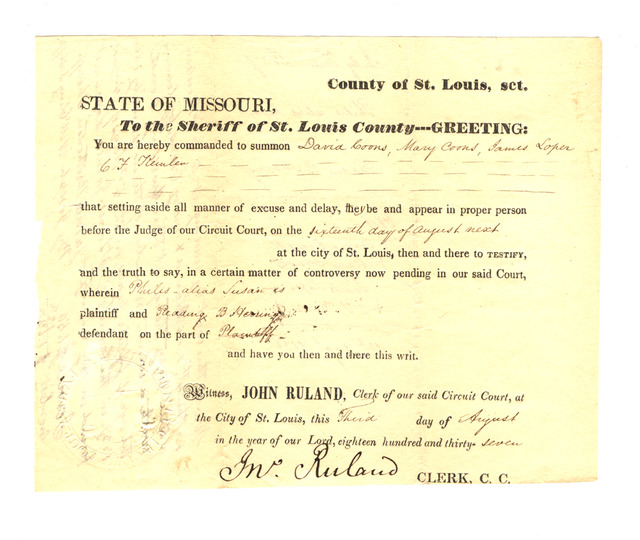 County of St. Louis, sct.
STATE OF MISSOURI,
To the Sheriff of St. Louis County---GREETING:
You are hereby commanded to summon David Coons, Mary Coons, James Loper
C F
that setting aside all manner of excuse and delay, they be and appear in proper person
before the Judge of our Circuit Court, on the sixteenth day of August next
at the city of St. Louis, then and there to TESTIFY,
and the truth to say, in a certain matter of controversy now pending in our said Court,
wherein Philes - alias Susan is
plaintiff and Reading B Herring
defendant on the part of Plaintiff -
and have you then and there this writ.
Witness, JOHN RULAND, Clerk of our said Circuit Court, at
the City of St. Louis, this Third day of August
in the year of our Lord, eighteen hundred and thirty-seven
Jno. Ruland CLERK, C. C.